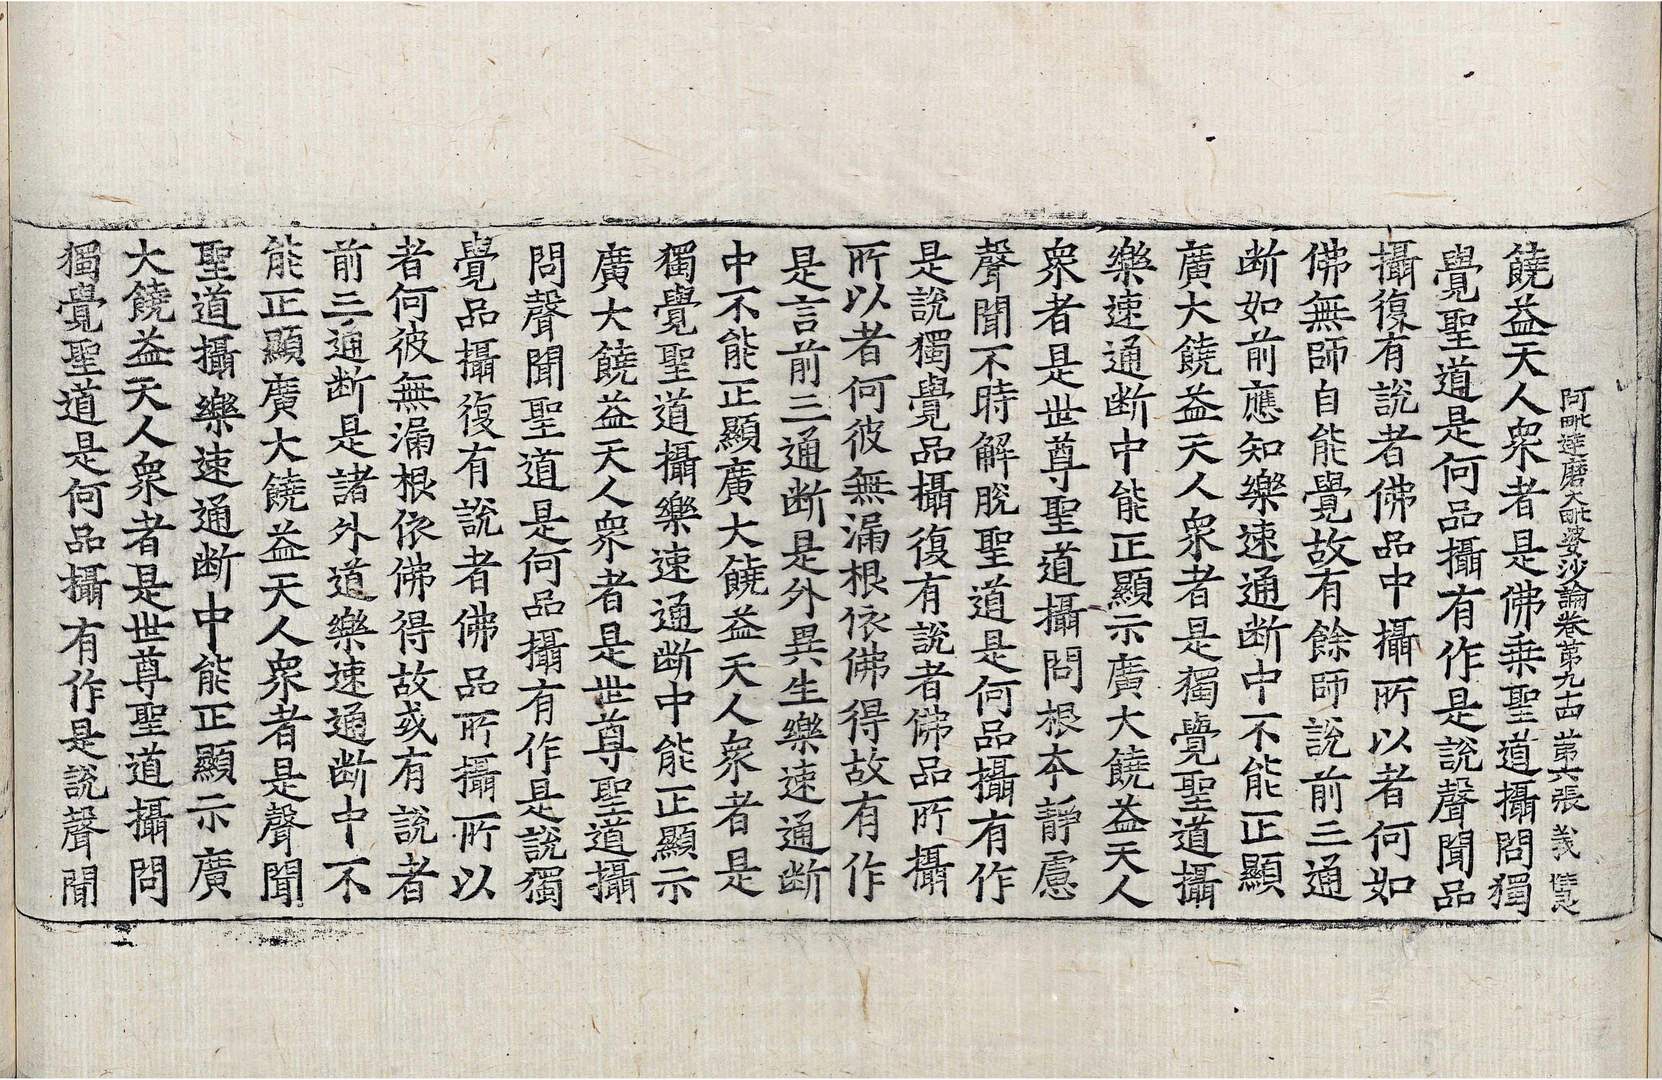 阿毗達磨大毗婆沙論卷第九十四 第六張 義
饒益天人衆者是佛乗聖道攝問獨
覺聖道是何品攝有作是說聲聞品
攝復有說者佛品中攝所以者何如
佛無師自能覺故有餘師說前三通
断如前應知樂速通断中不能正顯
廣大饒益天人衆者是獨覺聖道攝
樂速通断中能正顯示廣大饒益天人
衆者是世尊聖道攝問根本靜慮
聲聞不時解脫聖道是何品攝有作
是說獨覺品攝復有說者佛品所攝
所以者何彼無漏根依佛得故有作
是言前三通断是外異生樂速通断
中不能正顯廣大饒益天人衆者是
獨覺聖道攝樂速通断中能正顯示
廣大饒益天人衆者是世尊聖道攝
問聲聞聖道是何品攝有作是說獨
覺品攝復有說者佛品所攝所以
者何彼無漏根依佛得故或有說者
前三通断是諸外道樂速通断中不
能正顯廣大饒益天人衆者是聲聞
聖道攝樂速通断中能正顯示廣
大饒益天人衆者是世尊聖道攝問
獨覺聖道是何品攝有作是說聲聞